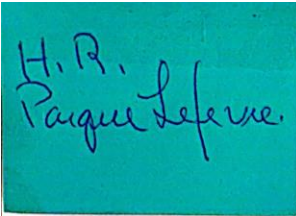 H. R.
Parque Lefevre.